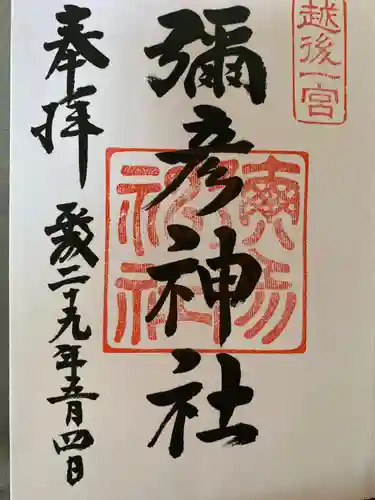 越後一宮
彌彦神社
奉拝
平成二十九年五月四日